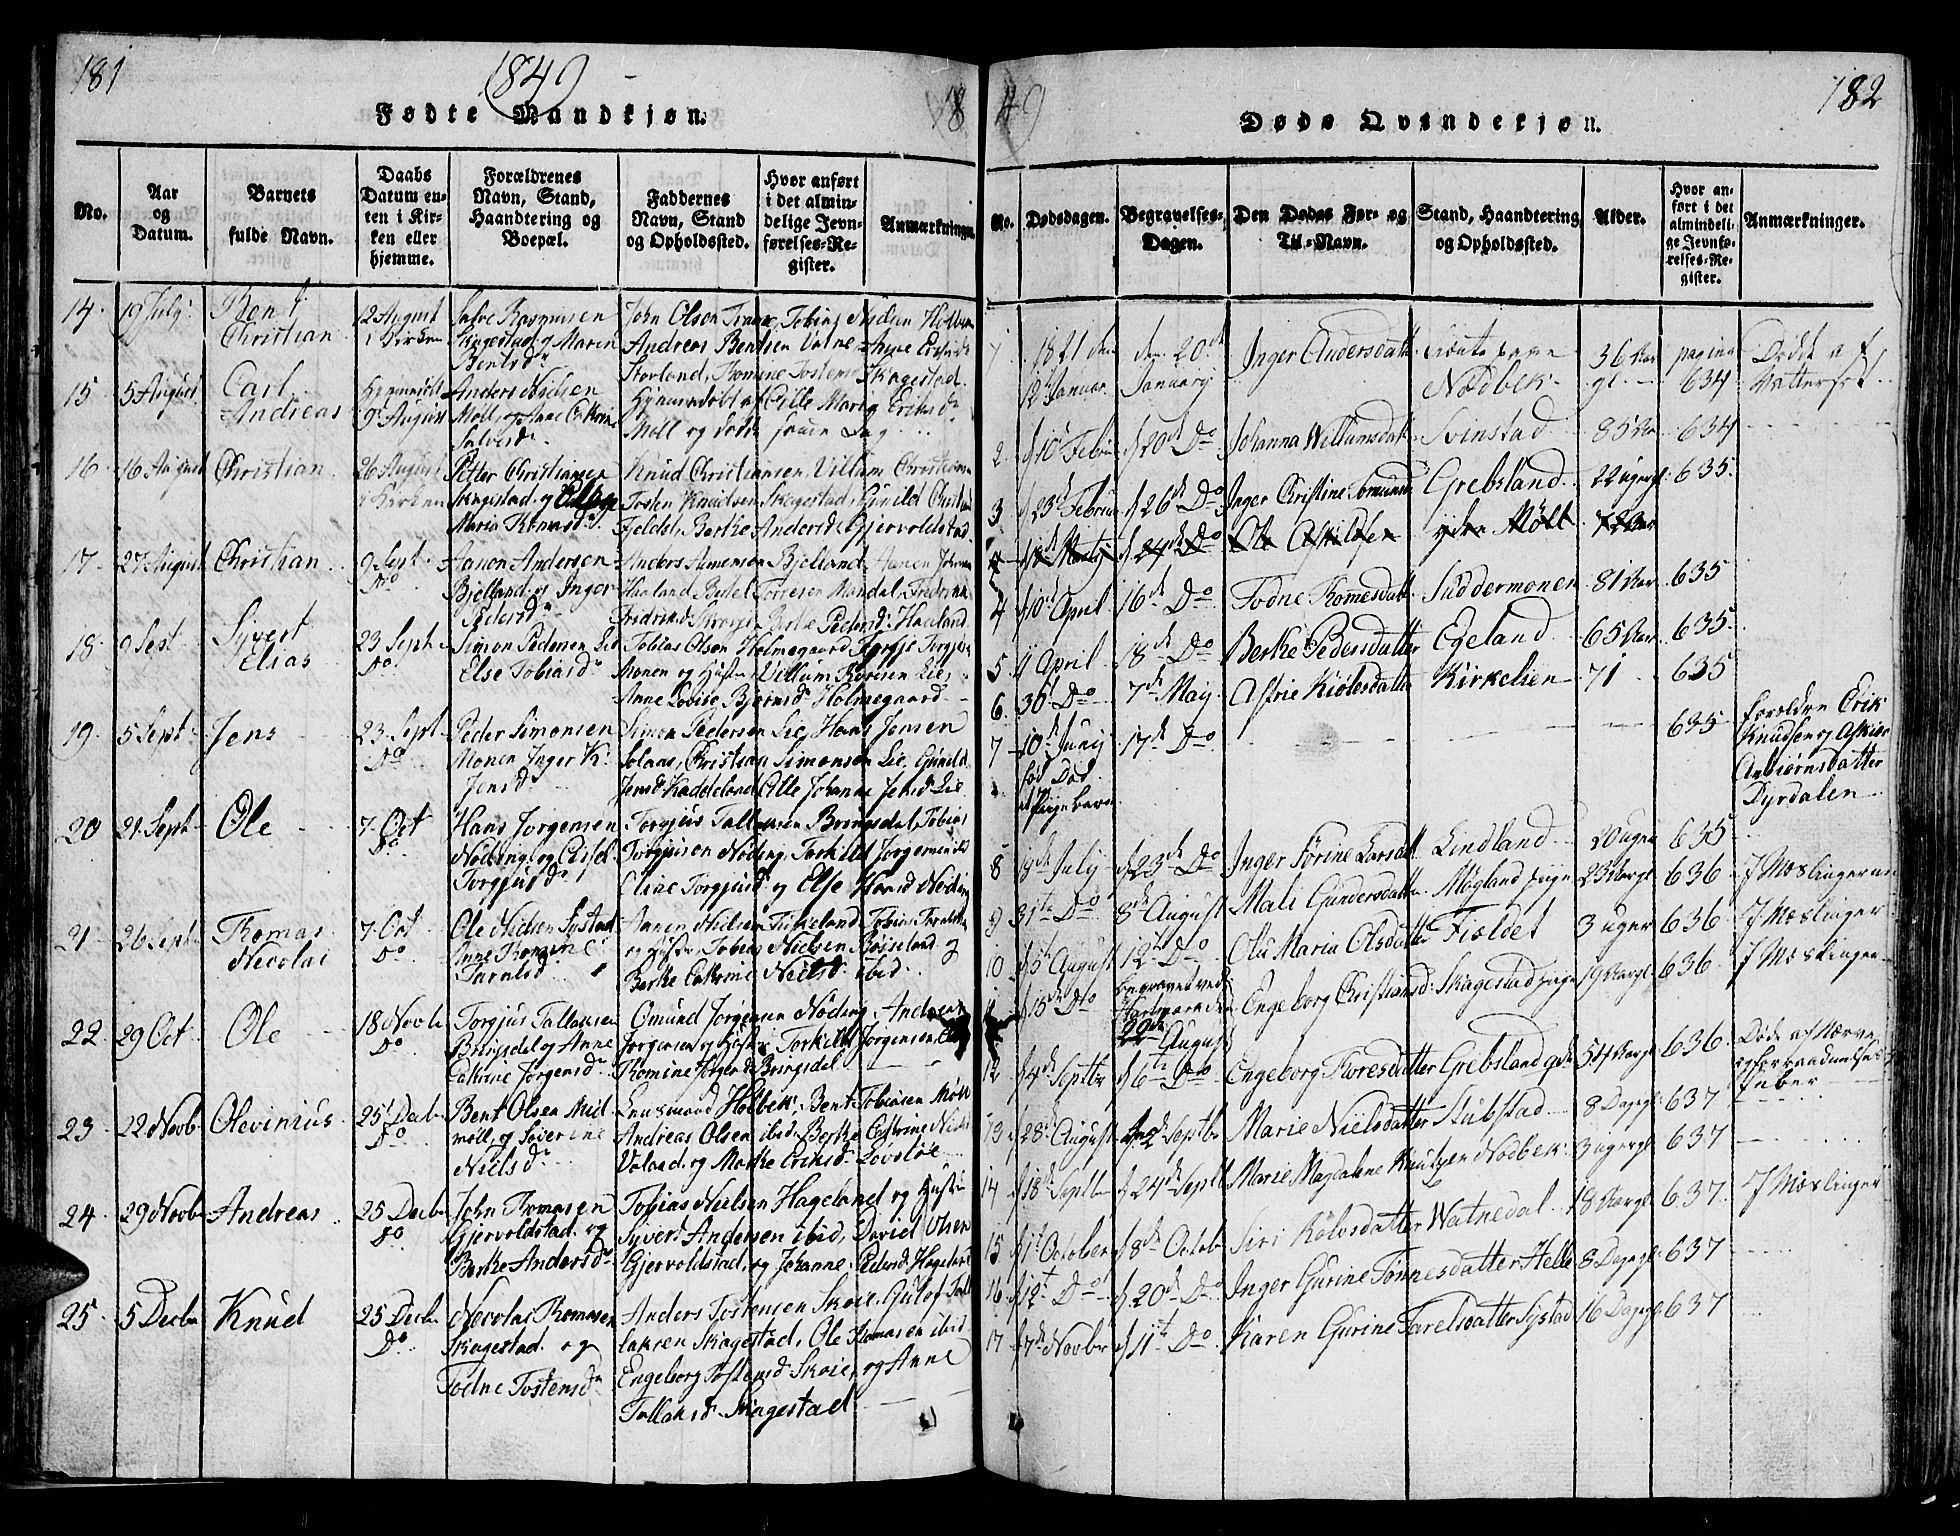 181
1849
Fødte Mandkjøn.
18
No.
Aar
og
Datum.
Barnets
fulde Navn.
Daabs
Datum en-
ten i Kir-
ken eller
hjemme.
Forældrenes
Navn, Stand,
Haandtering og
Boepæl.
Faddernes
Navn, Stand
og Opholdssted.
Hvor anført
i det almin-
delige Jevn-
førelses-Re-
gister.
Anmærkninger.
14.
19 July
Bent
Christian
12 August
i Kirken
Salve Rasmusen
Skagestad og Maren
Bentsdr
John Olsen Trane, Tobias Nielsen Holbek
Andreas Bentsen Valne
Storland, Thomine Tostens Skagestad
15
5 August
Carl
Andreas
Hjemmedøbt
9 August
Anders Nielsen
Møll, og Anne Cathrine
Salvesdr
Hjemmedøbt af Cille Marie Eriksdr
Møll og døde samme Dag
16
16 August
Christian
26 August
i Kirken
Petter Christiansen
Skagestad, og
Maria Thomasdr
Knud Christiansen, Villum Christensen
Tosten Knudsen Skagestad, Gunild
Fjeldet, Berthe Andersdr Gjervoldstad
17
27 August
Christian
9 Sept
Do
Aanon Andersen
Bjelland, og Inger
Pedersdr
Anders Aanensen Bjelland, Aanen
Haaland, Betel Torjesen Mandal, Fredrikke
Berthe Pedersdr Haaland
18
9 Sept
Syvert
Elias
23 Sept
Do
Simon Pedersen Lie
Else Tobiasdr
Tobias Olsen Holmegaard, Torgje Torgjesen
Monen og Hustru, Villum Lie,
Anne Lovise Bjørnsdr Holmegaard
19
5 Sept
Jens
23 Sept
Do
Peder Simonsen
Monen, Inger K.
Jensdr
Simon Pedersen Lie, Hans Jensen
Solaas, Christian Simonsen Lie, Gunild
Jensdr Kaddeland, Cille Johanne Jensdr Lie
20
21 Sept
Ole
7 Oct
Do
Hans Jørgensen
Nøding, og Assel
Torgjusdr
Torgjus Tallaksen Bringsdal, Tobias
Torgjusen Nøding, Torkild Jørgensen ibid
Eline Torgjusdr og Else Hansdr Nøding
21
26 Sept
Thomas
Nicolai
7 Oct
Do
Ole Nielsen Systad
Anne Thomine
Tarelsdr
Aanen Nielsen
og Hustru, Tobias Nielsen Røiseland
Berthe Cathrine Nielsdr ibid
22
29 Oct
Ole
18 Novb
Do
Torgjus Tallaksen
Bringsdal og Anne
Cathrine Jørgensdr
Omund Jørgensen Nøding, Andreas
Jørgensen og Hustru, Torkild Jørgensen
Thomine Jørgensdr Bringsdal
23
22 Novb
Olevinius
25 Decb
Do
Bent Olsen Mid
møll, og Severine
Nielsdr
Holbek, Bent Tobiasen Møll
Andreas Olsen ibid, Berthe Cathrine Niels
Valand, og Marthe Eriksdr Løvsløe
24
29 Novbr
Andreas
25 Decbr
Do
John Thomasen
Gjervoldstad, og
Berthe Andersdr
Tobias Nielsen Hageland og Hustru
Syvert Andersen ibid, David Olsen
Gjervoldstad, og Johanne Pedersd Hageland
25
5 Decbr
Knud
25 Decbr
Do
Nicolai Thomasen
Skagestad og
Todne Tostensdr
Anders Tostensen Skoie, Gulof Tal
laksen Skagestad, Ole Thomasen ibid
Engeborg Tostensd Skoie, og Anne
Tallaksd Skagestad
49
182
Døde Qvindekjøn.
No.
Dødsdagen.
Begravelses-
Dagen.
Den Dødes For- og
Til-Navn.
Stand, Haandtering
og Opholdssted.
Alder.
Hvor an-
ført i det
almindeli-
ge Jevnfø-
relses-Re-
gister.
Anmærkninger.
1
1821 den
12te Januar
den 20de
January
Inger Andersdatter
Nødbek
36 Aar
gl.
pagina
634
Dødde af
Vattersot
2
d 10 Febru
d 20de Do
Johanna Willumsdatter
Svinstad
85 Aar
634
3
d 23de Februar
d 26de Do
Inger Christine
Grebsland
22 uger gl
635
d 24de Do
Ole Askildsen
ydre Møll
72 Aar
4
d 10de April
16de Do
Todne Thomesdatter
Suddermonen
81 Aar
635
5
11 April
18de Do
Berthe Pedersdatter
Egeland
65 Aar
635
6
30t Do
7de May
Astrie Kiølesdatter
Kirkelien
71
635
7
10de Juny
fød Død
et Pigebarn
17de Do
635
Forældre Erik
Knudsen og Askier
Anbiørnsdatter
Dyrdalen
8
19de July
d 23de Do
Inger Sørine Larsdatter
Lindland
20 uger
635
9
31te Do
8de August
Mali Gundersdatter
Møgland
23 Aar gl
636
I Mæslingerne
10
d 5te August
12te Do
Olu Maria Olsdatter
Fieldet
3 uger
636
I Mæslinger
11
d 15de Do
begravet ved
Hartmark den
22de August
Engeborg Christiansd:
Skagestad
19 Aar gl
636
I Mæslinger
12
d 4de Septbr
d 6te Do
Engeborg Thoresdatter
Grebsland
54 Aar gl
636
Døde af Nærve
og Forraadnelses
Feber
13
d 28de August
d 2de Septbr
Marie Nielsdatter
Stubstad
8 Dage gl
637
14
d 18de Septbr
d 24de Septb
Marie Magdalene Knutzen
Nødbek
3 uger gl
637
I Mæslinger
15
d 1te October
d 8de Octob
Siri Rølesdatter
Watnedal
18 Aar gl
637
16
d 12te Do
d 20de Do
Inger Gurine Tønnesdatter
Helle
8 Dage gl
637
17
d 7de Novbr
d 11te Do
Karen Gurine Tarelsdatter
Systad
16 Dage gl
637